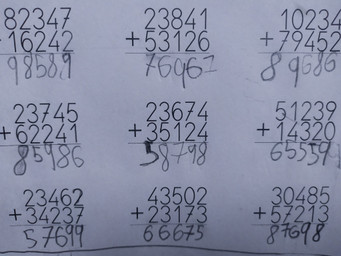 82347 23841 10234
16242 +53126 +79452
98589 76967 89686
23745 23674 51239
+62241 +35124 +14320
85986 58798 65559
23462 43502 30485
+34237 +23173 +57213
57699 66675 87698